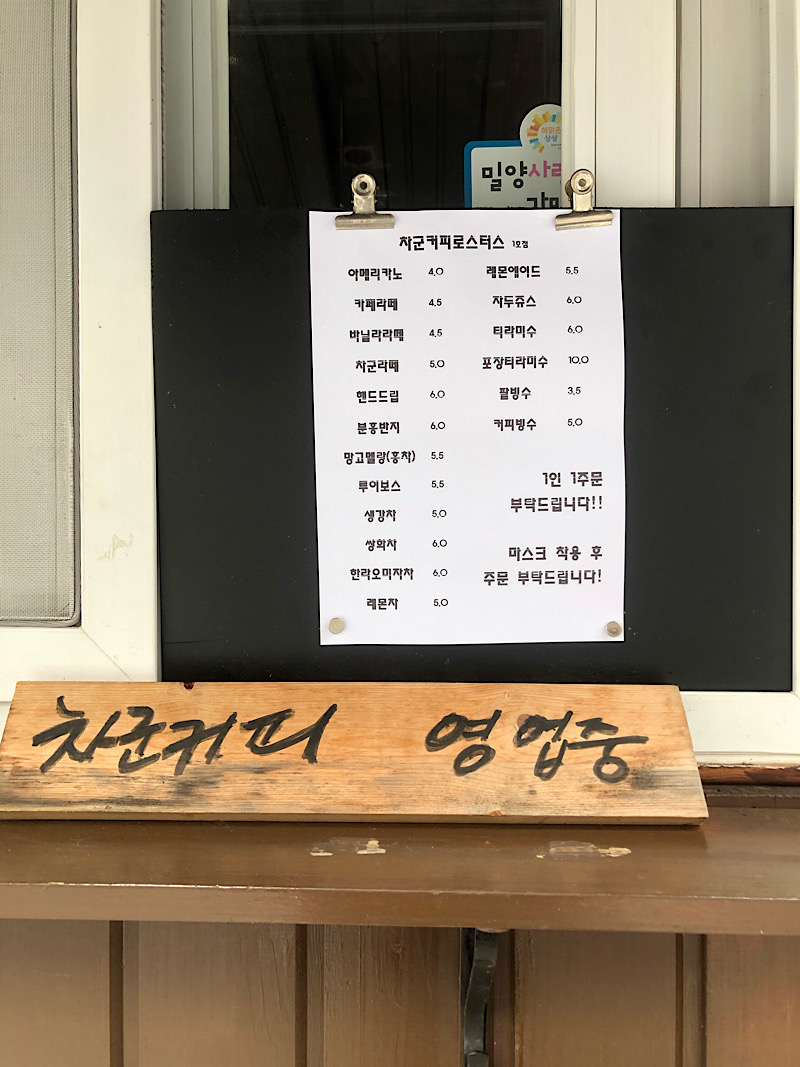 해맑은
상상
밀양사
차군커피로스터스 1호점
아메리카노 4.0
카페라떼 4.5
바닐라라떼 4.5
차군라떼 5.0
핸드드립 6.0
분홍반지 6.0
망고멜랑(홍차) 5.5
루이보스 5.5
생강차 5.0
쌍화차 6.0
한라오미자차 6.0
레몬차 5.0
레몬에이드 5.5
자두쥬스 6.0
티라미수 6.0
포장티라미수 10.0
팥빙수 3.5
커피빙수 5.0
1인 1주문
부탁드립니다!!
마스크 착용 후
주문 부탁드립니다!
차군커피 영업중